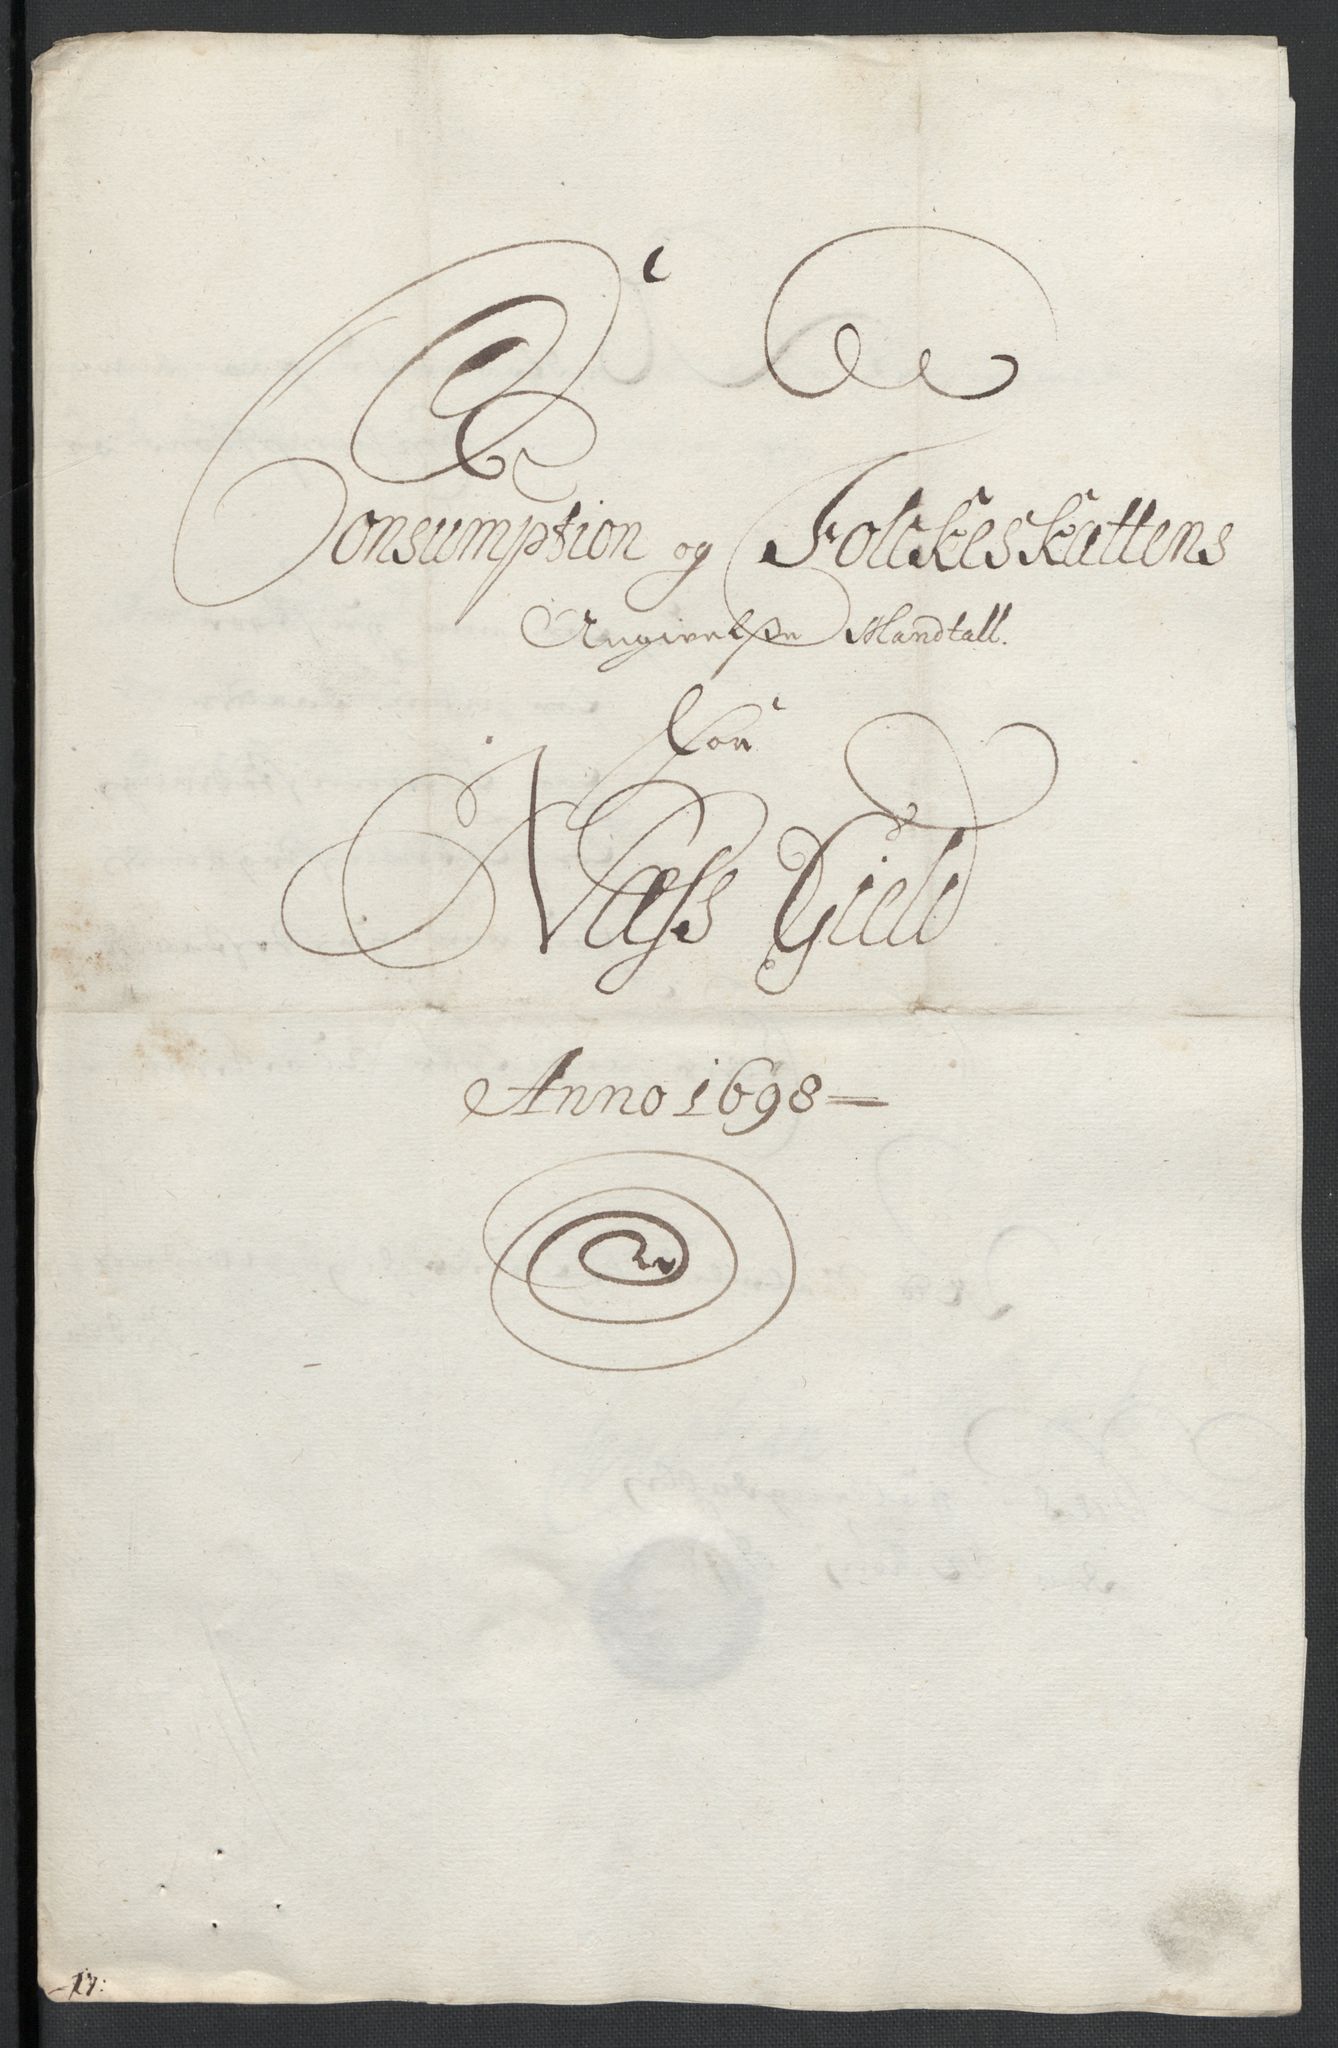 Consumption og Folckeskattens
Angivelsse Mandtall.
For
Næss Gield
Anno 1698
17: